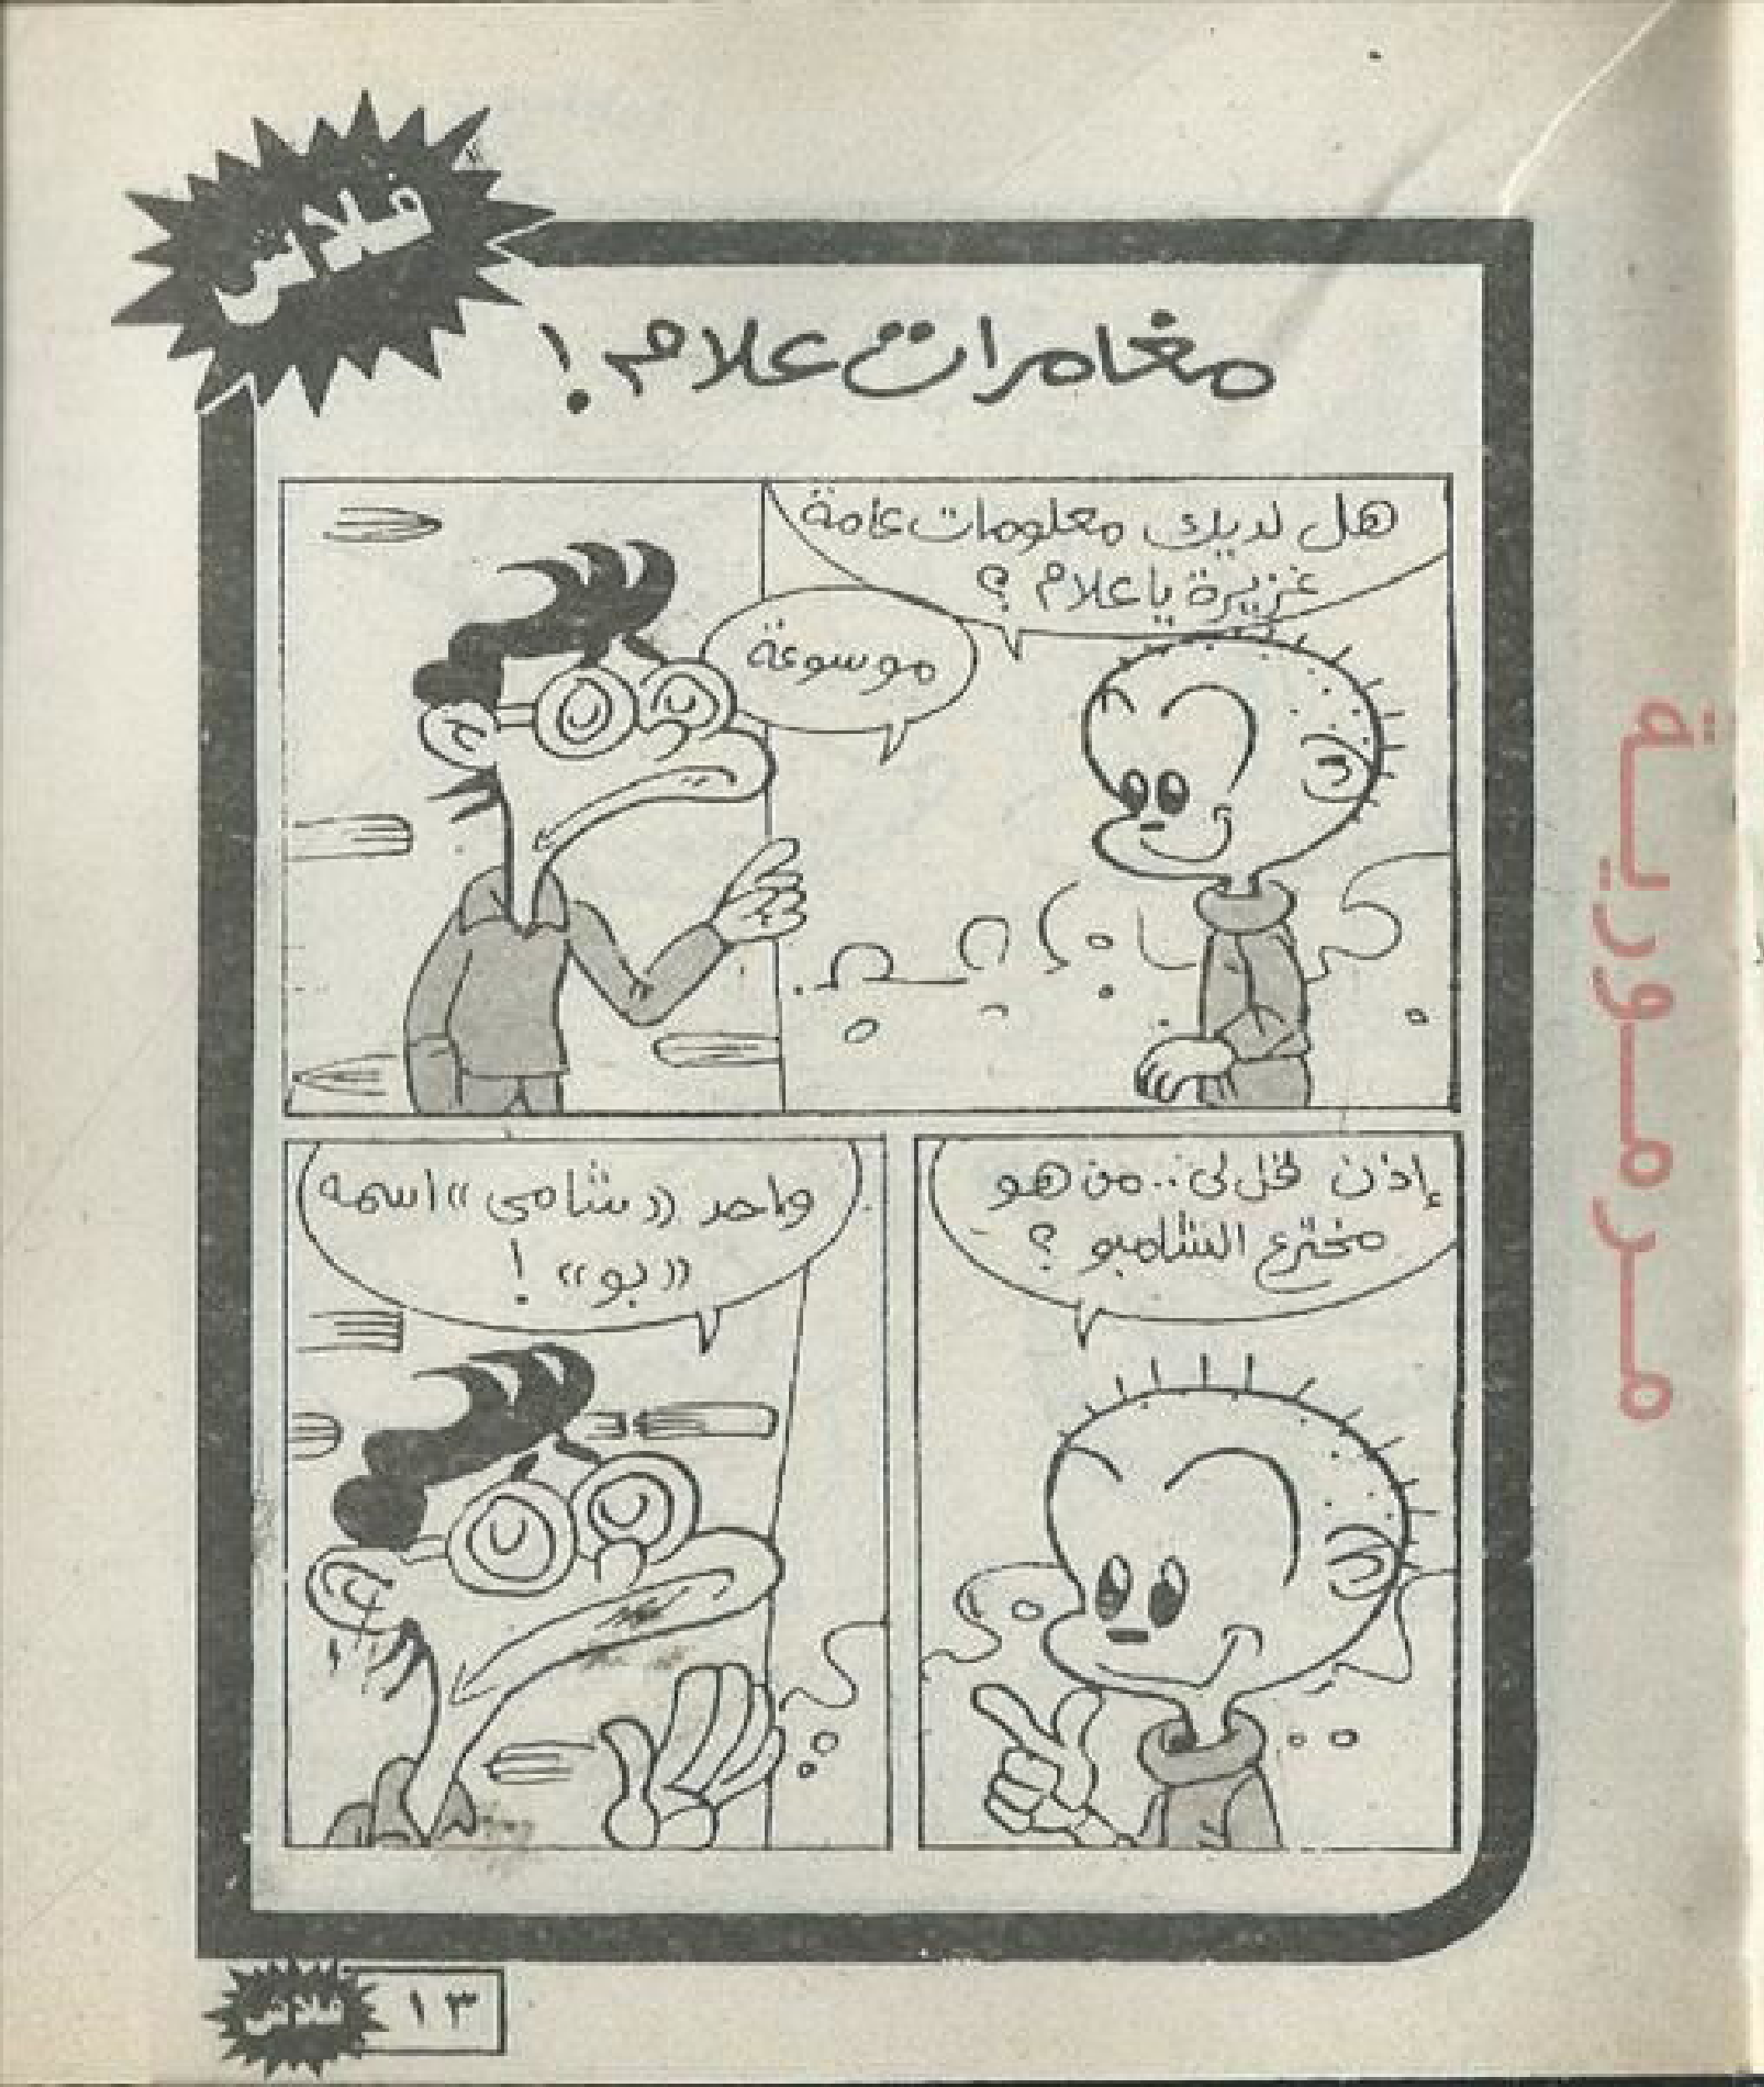 فلاش
مغامرات علام !
هل لديك معلومات عامة
غزيرة ياعلام ؟
موسوعة
إذن قل لى .. من هو
مخترع الشامبو ؟
واحد «شامى» اسمه
«بو» !
مرمورية
فلاش
١٣